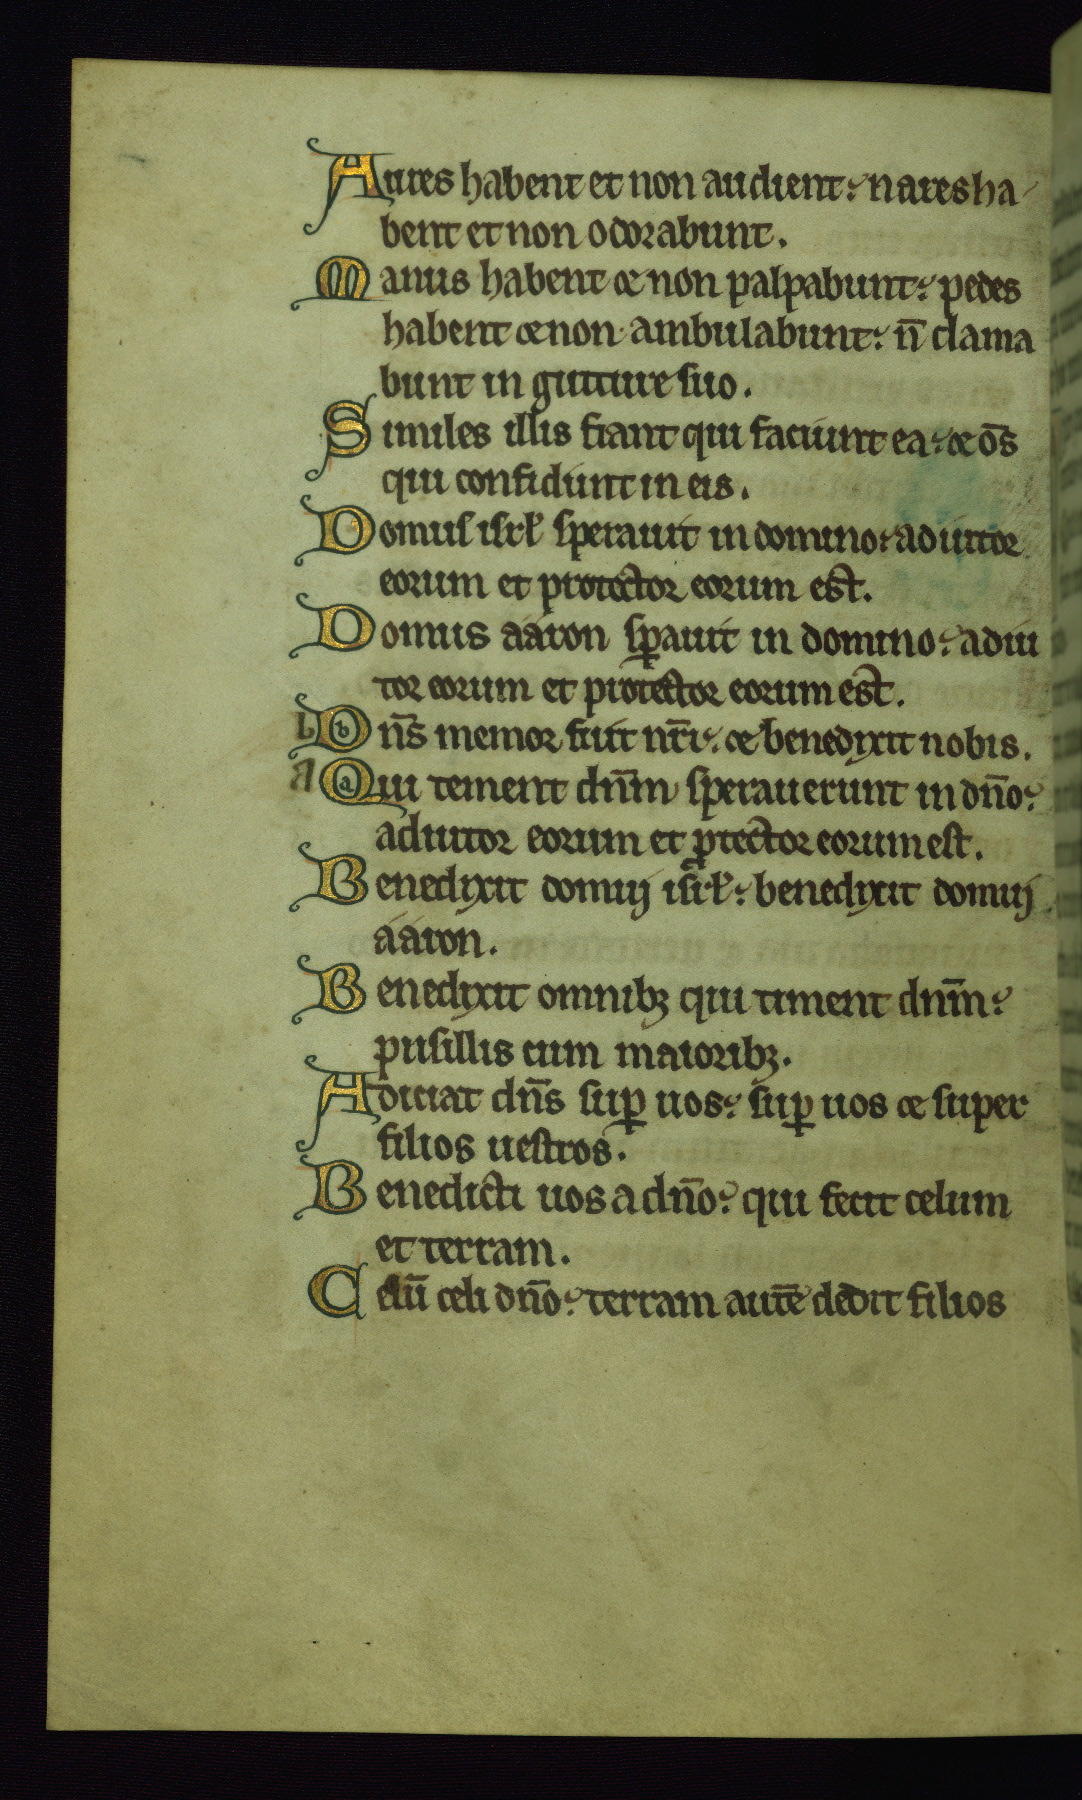 Aures habent et non audient: nares ha
bent et non odorabunt.
Manus habent & non palpabunt: pedes
habent & non ambulabunt: n̄ clama
bunt in gutture suo.
Similes illis fiant qui faciunt ea: & om̄s
qui confidunt in eis.
Domus isrl̄ sperauit in domino: adiutor
eorum et protector eorum est.
Domus aaron sꝑauit in domino: adiu
tor eorum et protector eorum est.
b Dn̄s memor fuit nr̄i: & benedixit nobis.
a Qui tement dn̄m sperauerunt in dn̄o:
adiutor eorum et ꝓtector eorum est.
Benedyxit domuj isrl̄: benedyxit domuj
aaron.
Benedyxit omnibꝫ qui timent dn̄m:
pusillis cum maioribꝫ.
Adiciat dn̄s suꝑ uos: suꝑ uos & super
filios uestros.
Benedicti uos a dn̄o: qui fecit celum
et terram.
Celū celi dn̄o: terram autē dedit filios